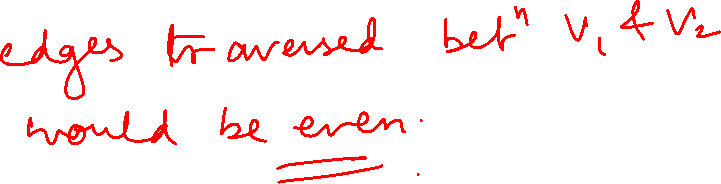 edges traversed betⁿ V₁ & V₂
would be even.